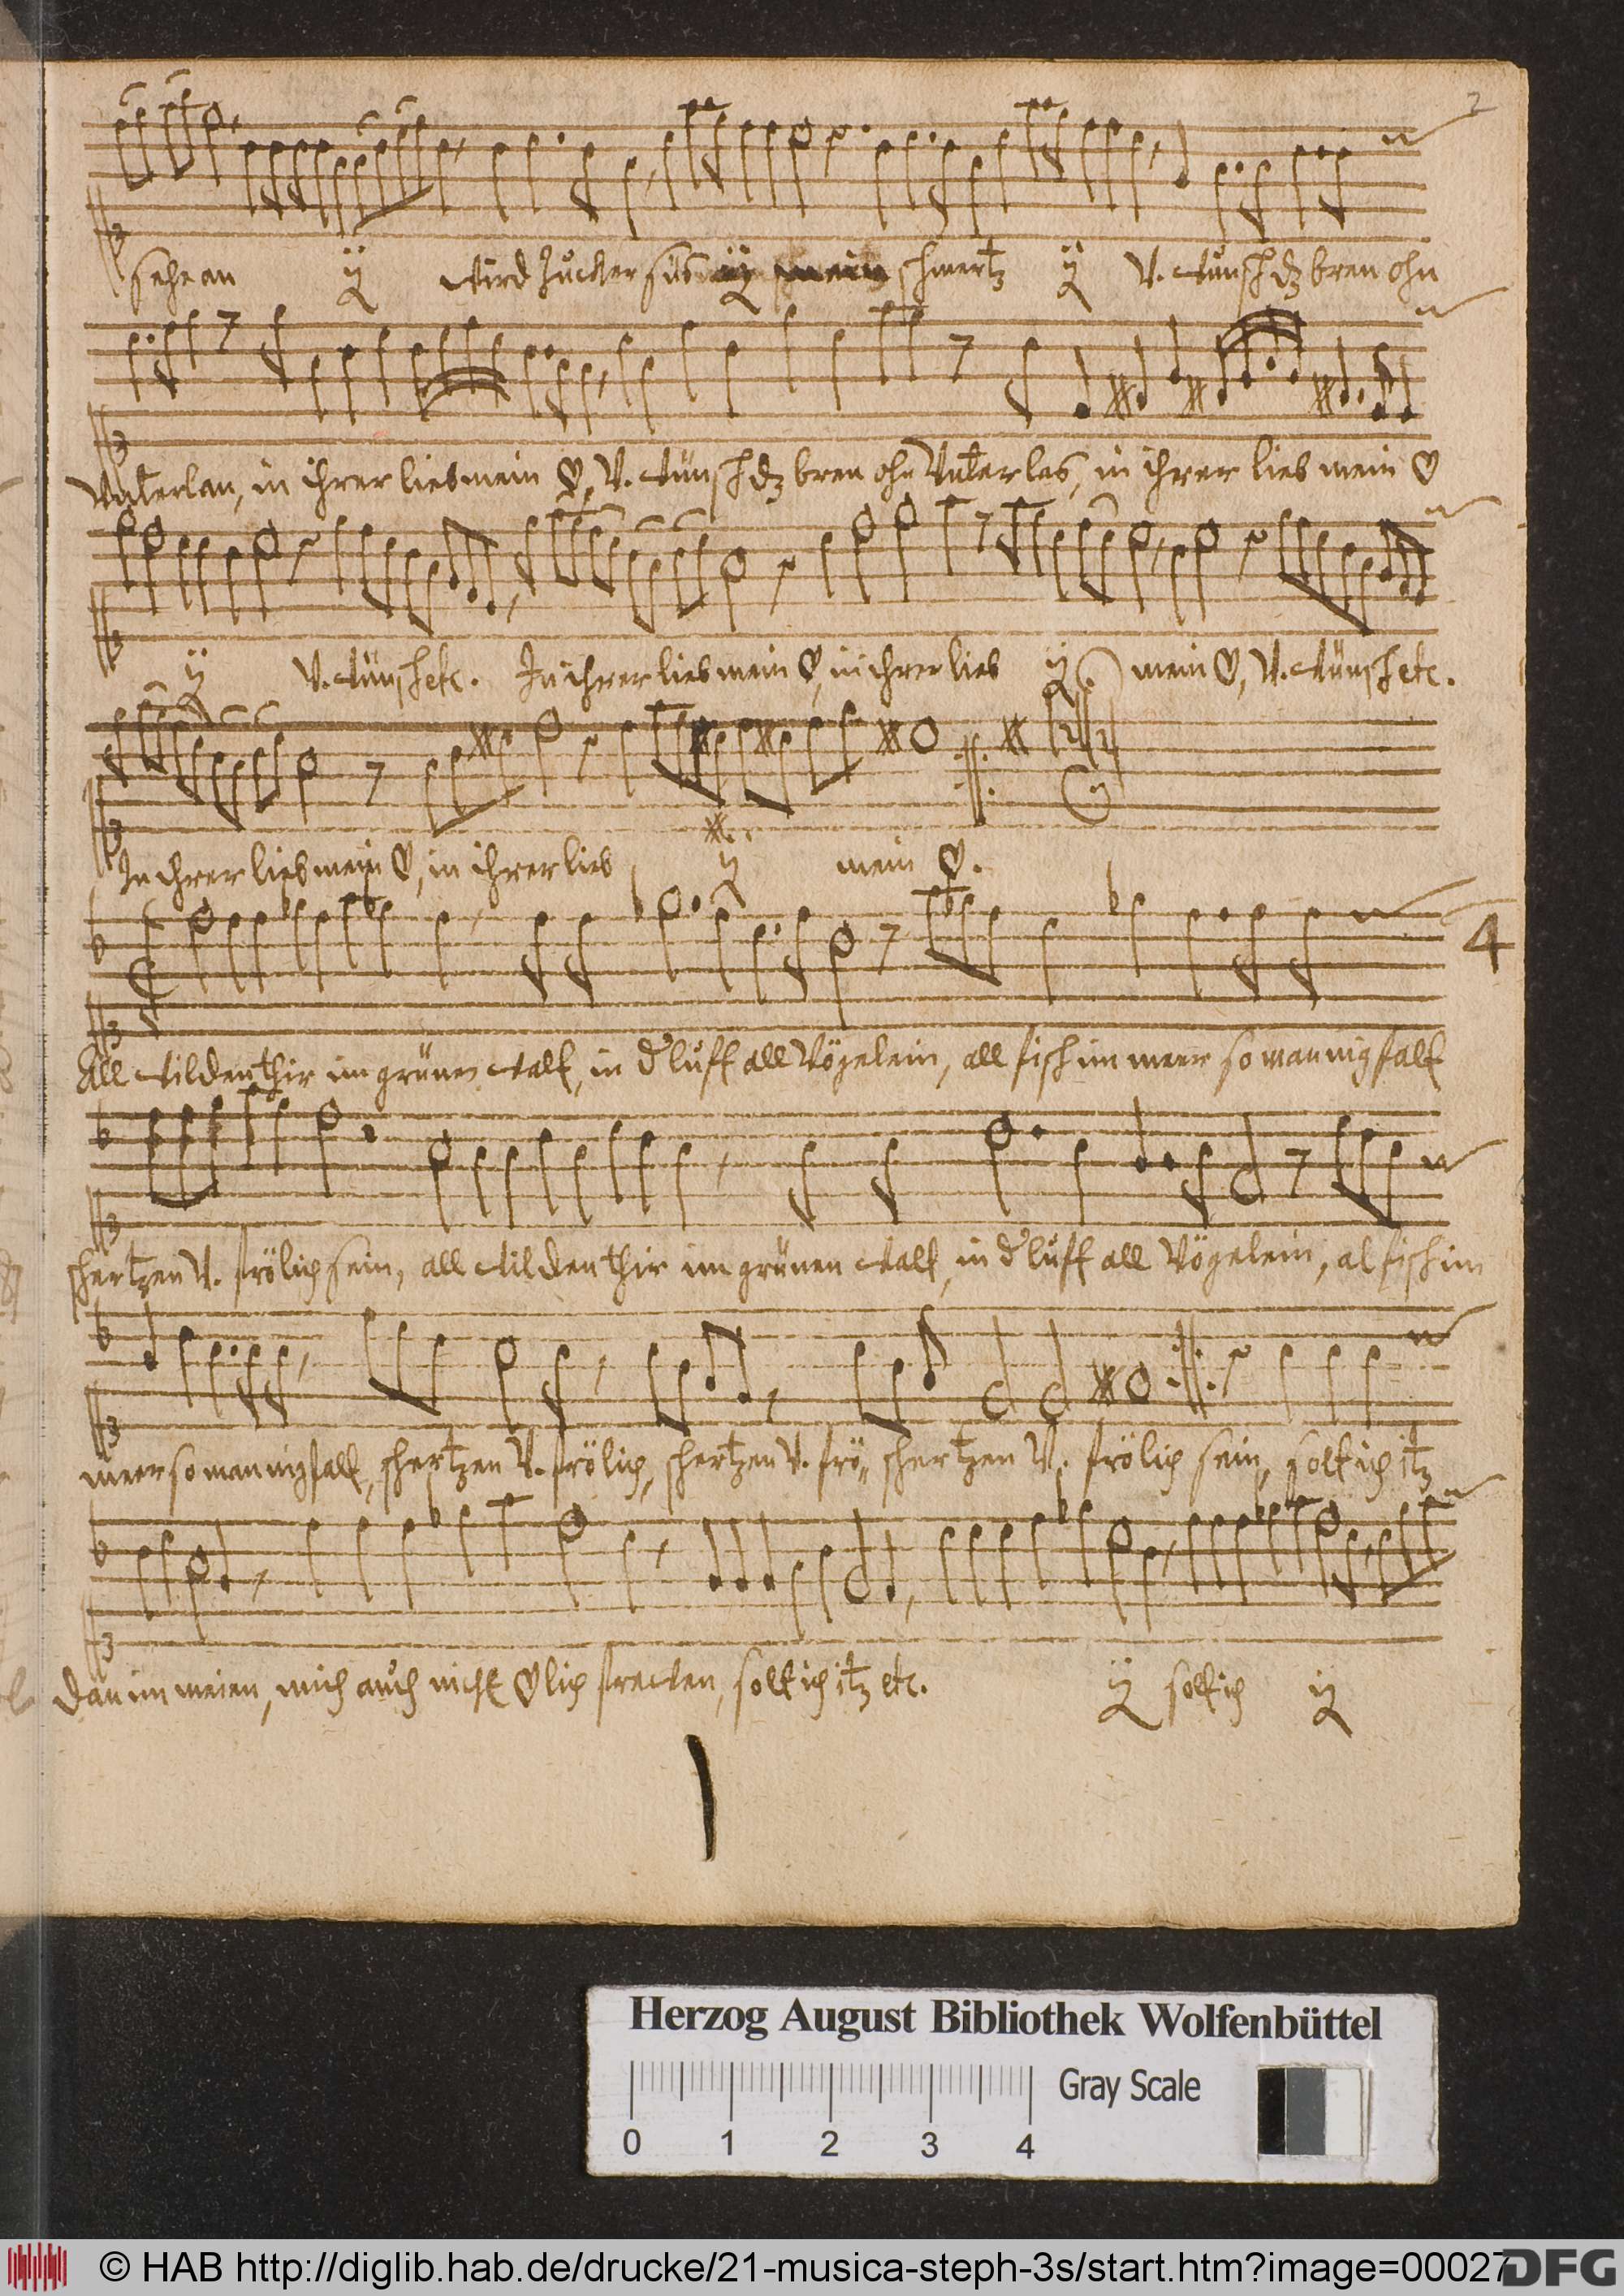 2
sehe an ij wird zucker süs ij mein schmertz ij V. wünsch dz bren ohn
Vnterlan, in ihrer lieb mein ♡, V. wünsch dz bren ohn Vnterlas, in ihrer lieb mein ♡
ij V. wünsch etc. In ihrer lieb mein ♡, in ihrer lieb ij mein ♡, V. wünsch etc.
In ihrer lieb mein ♡, in ihrer lieb ij mein ♡.
4
All wilden thir im grünen walt, in d' lufft all Vögelein, all fisch im meer so mannigfalt
schertzen V. frölich sein, all wilden thir im grünen walt, in d' lufft all Vögelein, al fisch im
meer so mannigfalt, schertzen V. frölich, schertzen V. frö,, schertzen V. frölich sein, solt ich itz
dan im meien, mich auch nicht ♡lich frewen, solt ich itz etc. ij solt ich ij
Herzog August Bibliothek Wolfenbüttel
Gray Scale
0 1 2 3 4
© HAB http://diglib.hab.de/drucke/21-musica-steph-3s/start.htm?image=00027
DFG